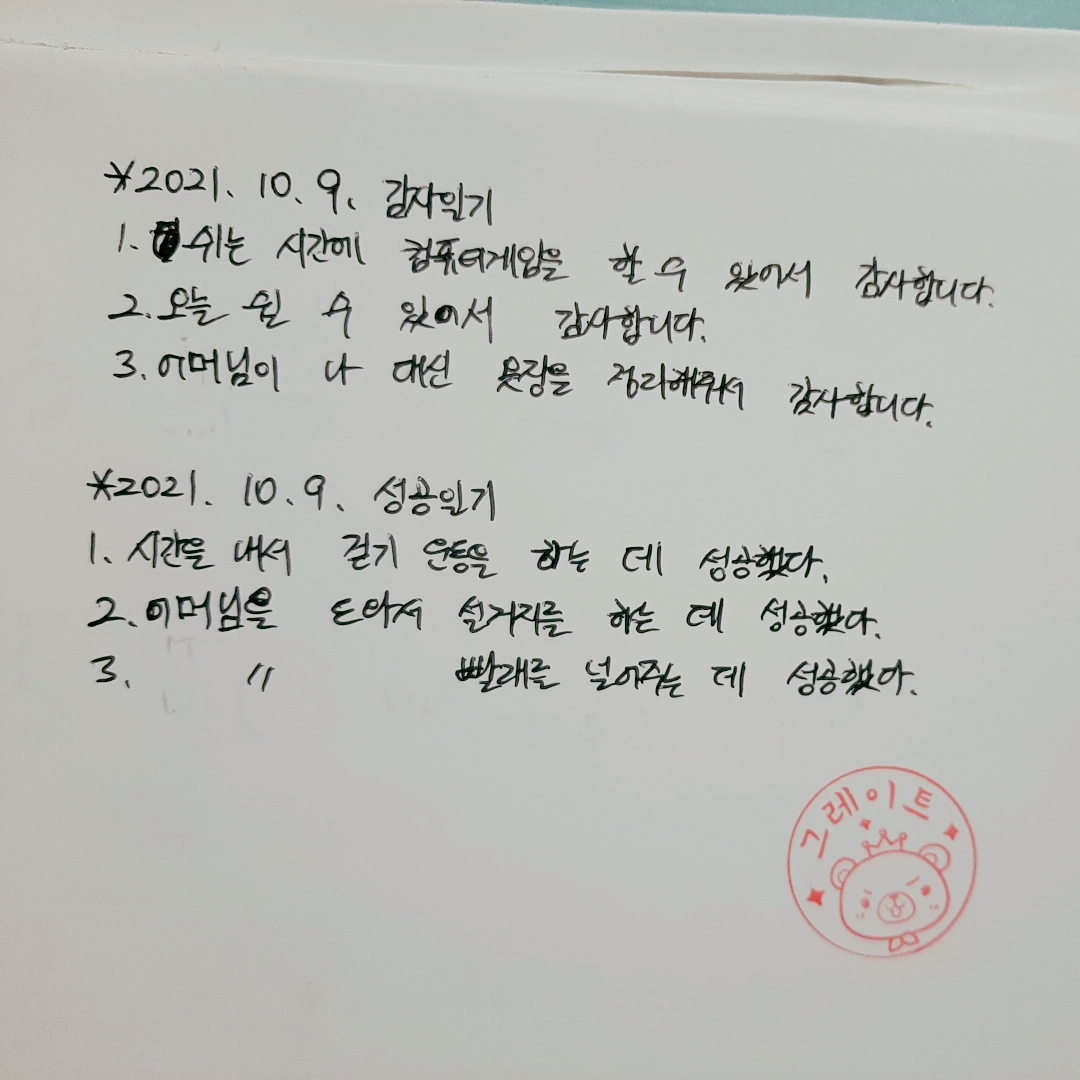 *2021. 10. 9. 감사일기
1. 쉬는 시간에 컴퓨터게임을 할 수 있어서 감사합니다.
2. 오늘 쉴 수 있어서 감사합니다.
3. 어머님이 나 대신 옷장을 정리해줘서 감사합니다.
*2021. 10. 9. 성공일기
1. 시간을 내서 걷기 운동을 하는 데 성공했다.
2. 어머님을 도와서 설거지를 하는 데 성공했다.
3. 〃 빨래를 널어주는 데 성공했다.
그레이트